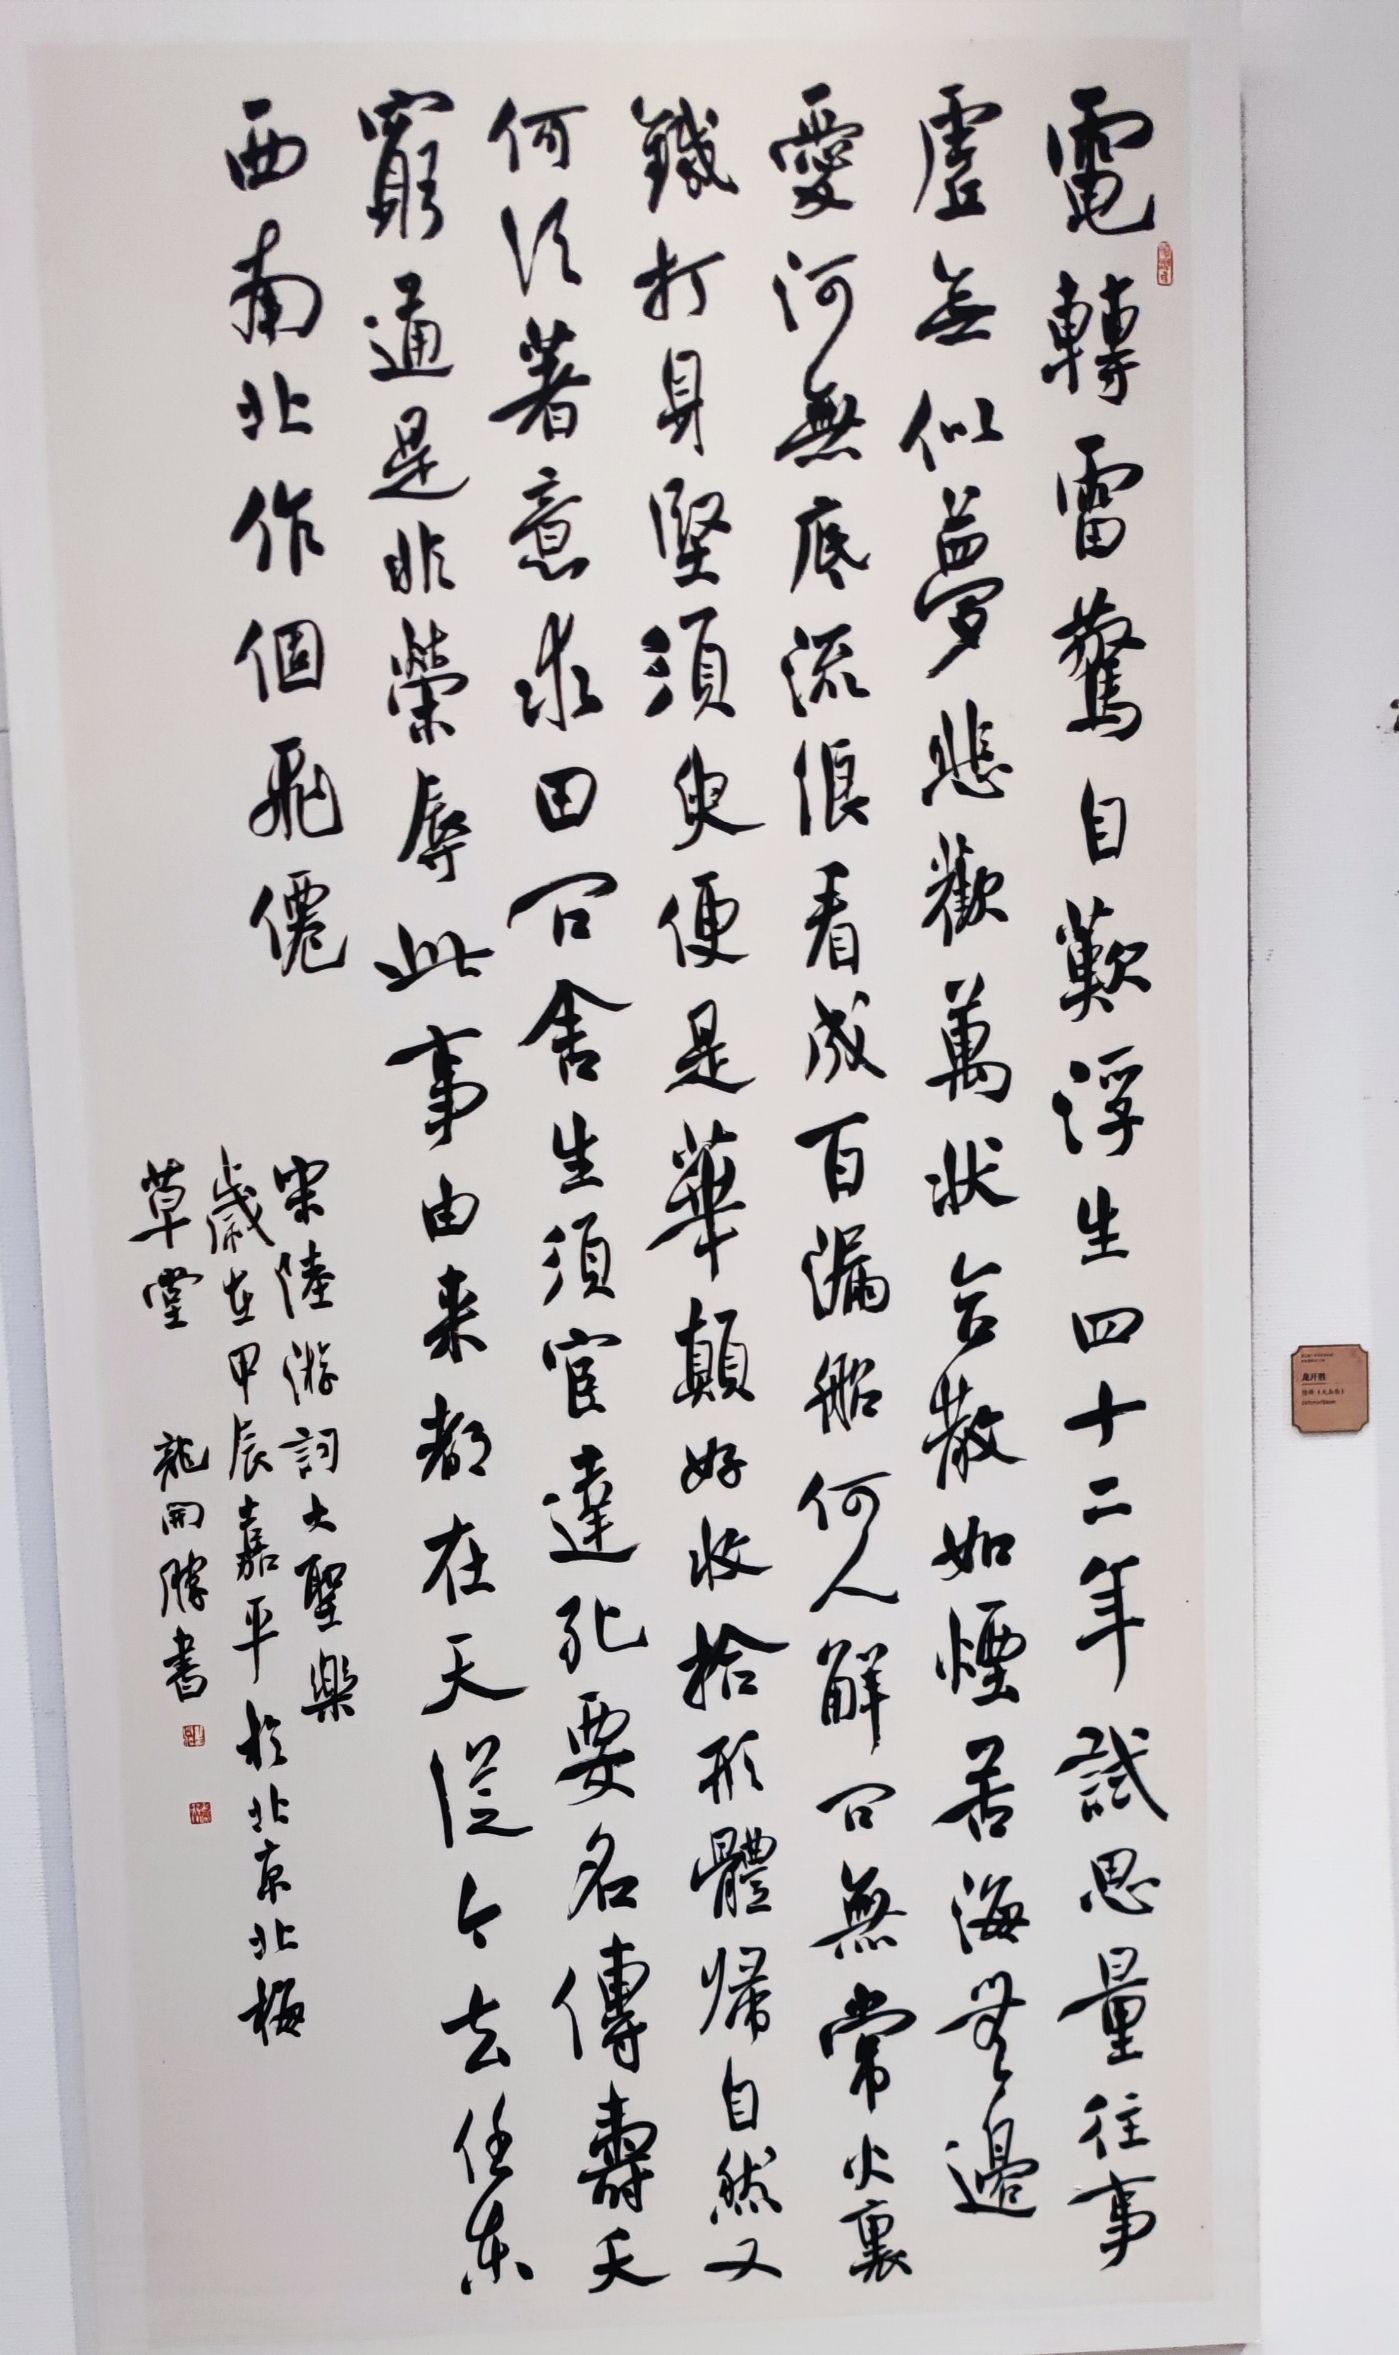 電轉雷驚自歎浮生四十二年試思量往事
虛無似夢悲歡萬狀合散如煙苦海無邊
愛河無底流浪看成百漏船何人解問無常火裏
鐵打身堅須臾便是華顛好收拾形體歸自然又
何須著意求田問舍生須宦達死要名傳壽夭
窮通是非榮辱此事由来都在天從今去任東
西南北作個飛僊
宋陸游詞大聖樂
歲在甲辰嘉平於北京北梅
草堂 龍開勝書
龙开胜